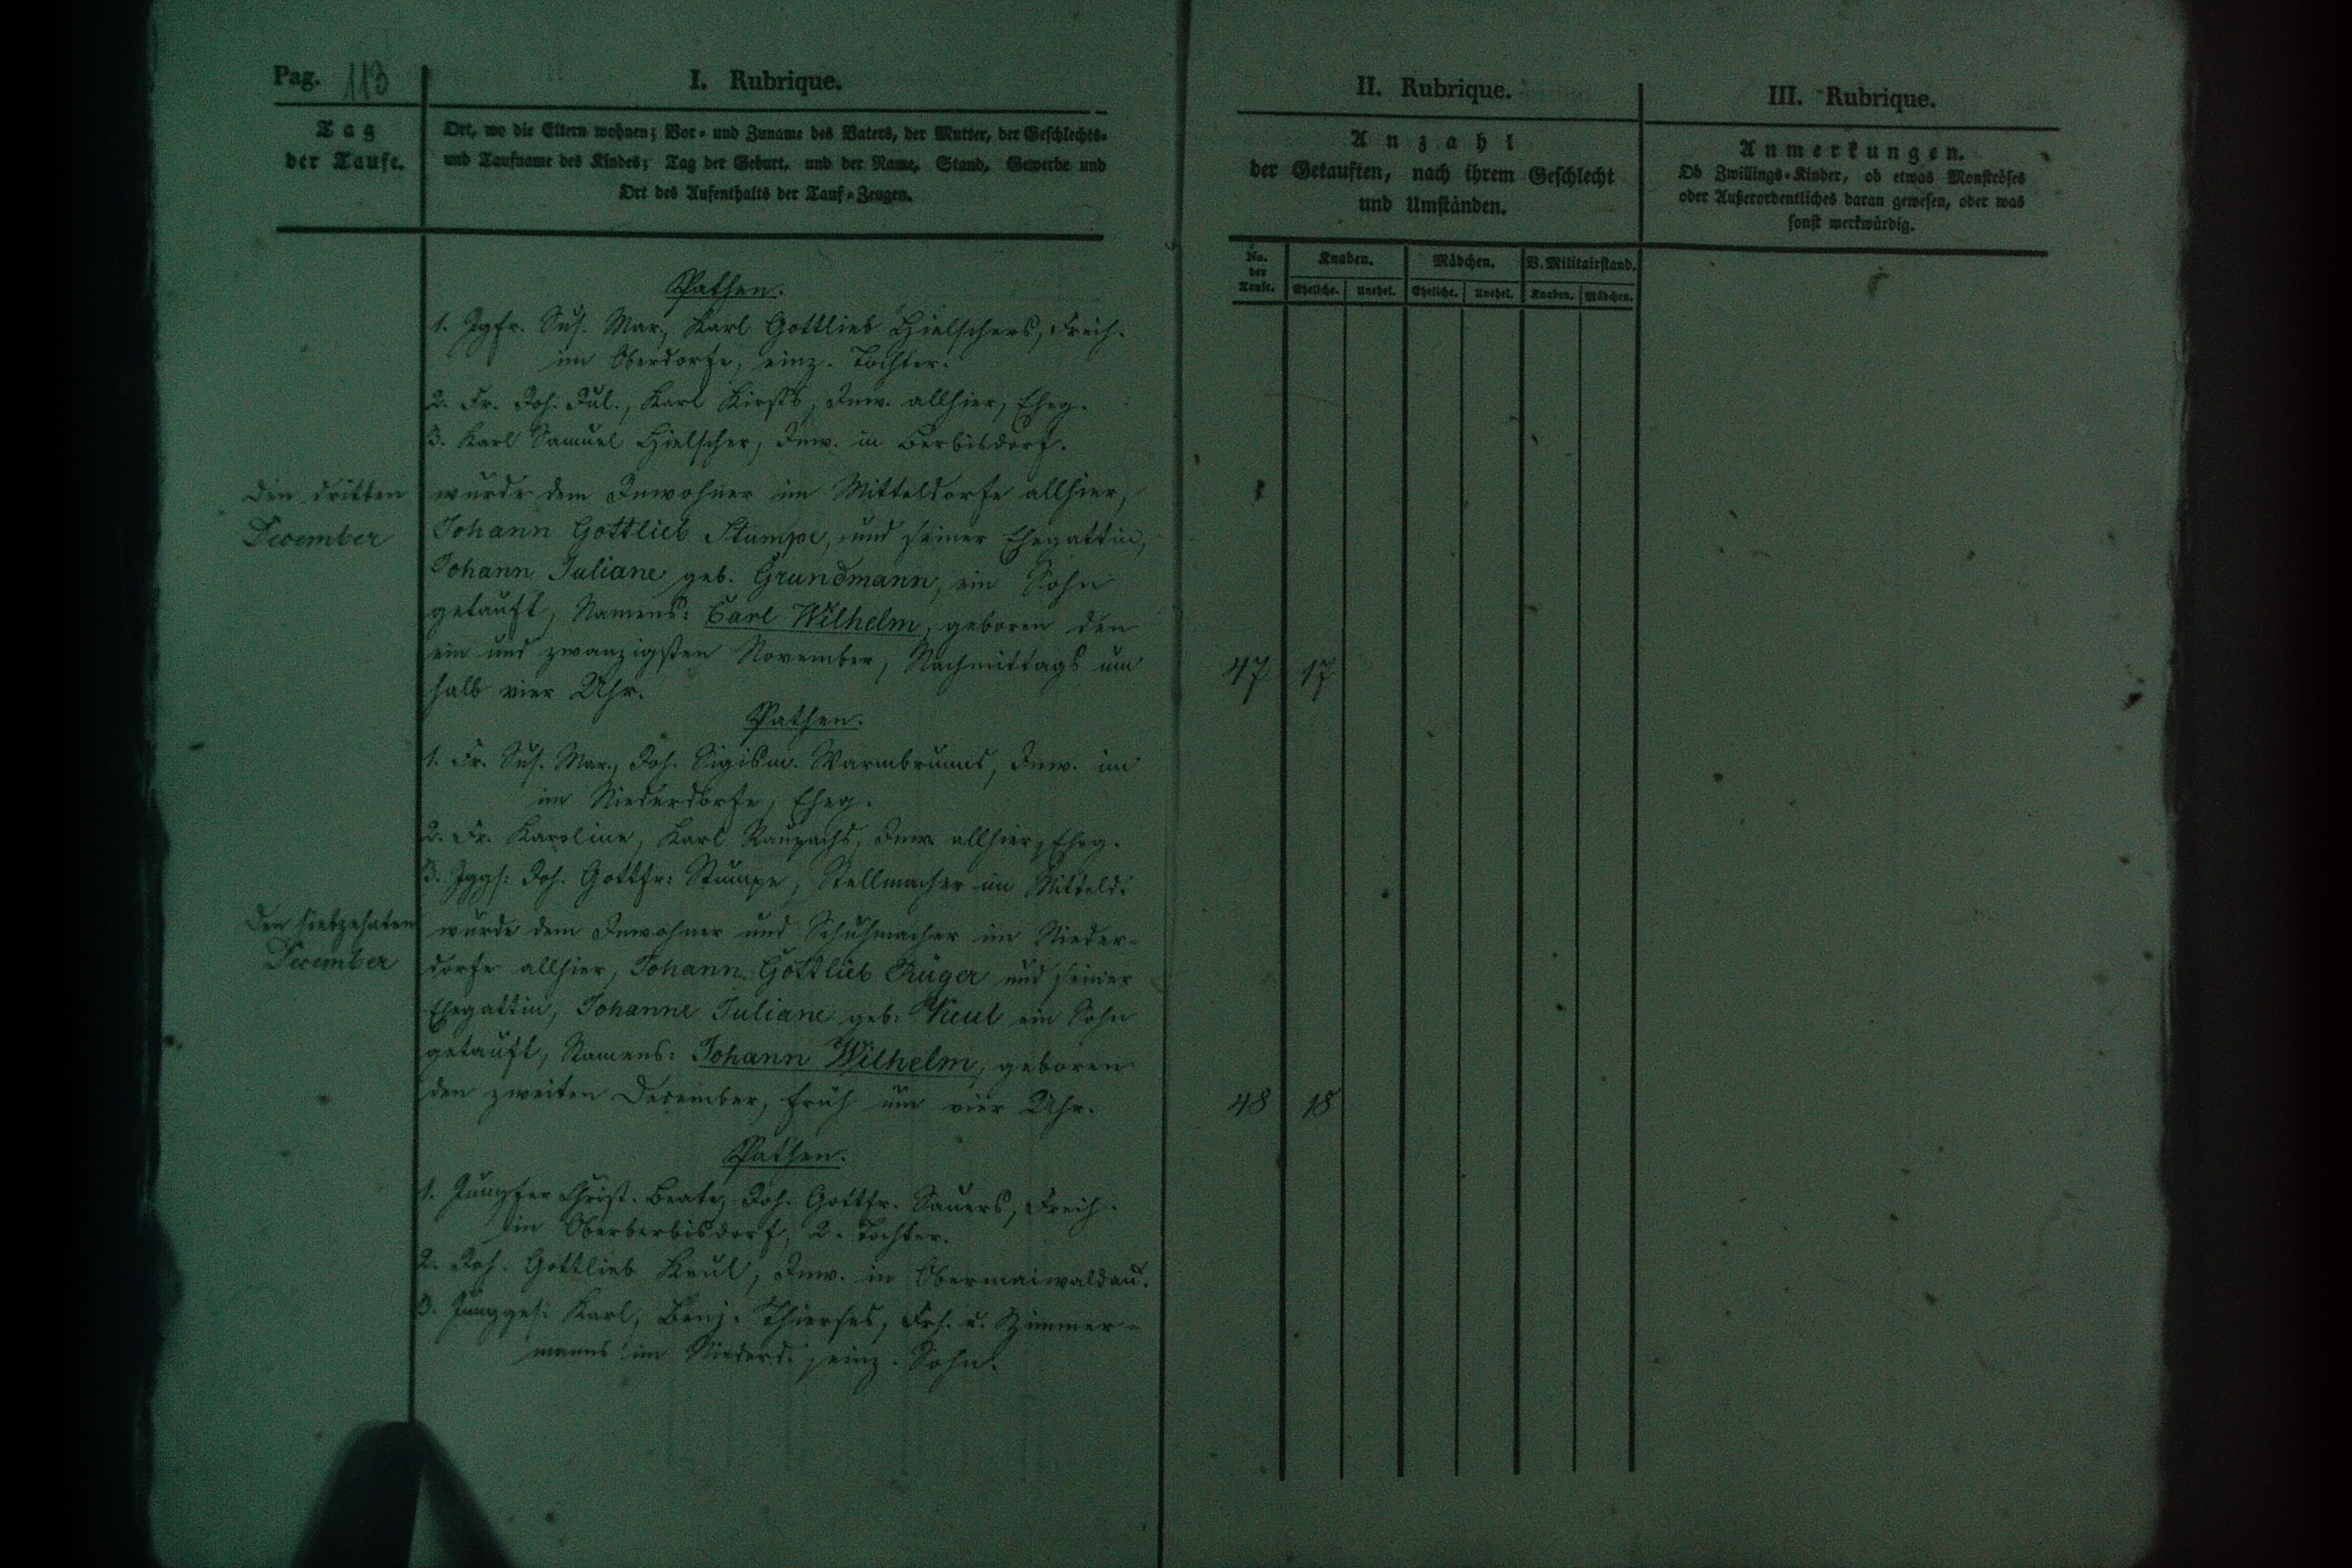 Pag. 113
I. Rubrique.
Tag
der Taufe.
Ort, wo die Eltern wohnen; Vor- und Zuname des Vaters, der Mutter, der Geschlechts-
und Taufname des Kindes; Tag der Geburt, und der Name, Stand, Gewerbe und
Ort des Aufenthalts der Tauf-Zeugen.
Pathen.
1. Jgfr. Sus. Mar., Karl Gottlieb Hielschers, Freih.
im Oberdorfe, einz. Tochter.
2. Fr. Joh. Jul., Karl Kirsts, Inw. allhier, Eheg.
3. Karl Samuel Hielscher, Inw. in Berbisdorf.
Den dritten
December
wurde dem Inwohner im Mitteldorfe allhier,
Johann Gottlieb Stumpe, und seiner Ehegattin,
Johann Juliane geb. Grundmann, ein Sohn
getauft, Namens: Carl Wilhelm, geboren den
ein und zwanzigsten November, Nachmittags um
halb vier Uhr.
Pathen.
1. Fr. Sus. Mar., Joh. Sigism. Warmbrunns, Inw. im
im Niederdorfe, Eheg.
2. Fr. Karoline, Karl Raupachs, Inw. allhier, Eheg.
3. Jggs: Joh. Gottfr: Stumpe, Stellmacher im Mitteld:
Den siebzehnten
December
wurde dem Inwohner und Schuhmacher im Nieder-
dorfe allhier, Johann Gottlieb Rüger und seiner
Ehegattin, Johanne Juliane geb: Keul ein Sohn
getauft, Namens: Johann Wilhelm, geboren
den zweiten December, früh um vier Uhr.
Pathen.
1. Jungfer Christ. Beate, Joh. Gottfr. Sauers, Freih.
in Oberberbisdorf, 2. Tochter.
2. Joh. Gottlieb Keul, Inw. in Obermaiwaldau.
3. Jungges: Karl, Benj. Thierses, Frh. u. Zimmer-
manns im Niederd: einz. Sohn.
II. Rubrique.
Anzahl
der Getauften, nach ihrem Geschlecht
und Umständen.
No.
der
Taufe.
Knaben.
Mädchen.
V. Militairstand.
Eheliche. Unehel. Eheliche. Unehel. Knaben. Mädchen.
47 17
48 18
III. Rubrique.
Anmerkungen.
Ob Zwillings-Kinder, ob etwas Monströses
oder Außerordentliches daran gewesen, oder was
sonst merkwürdig.